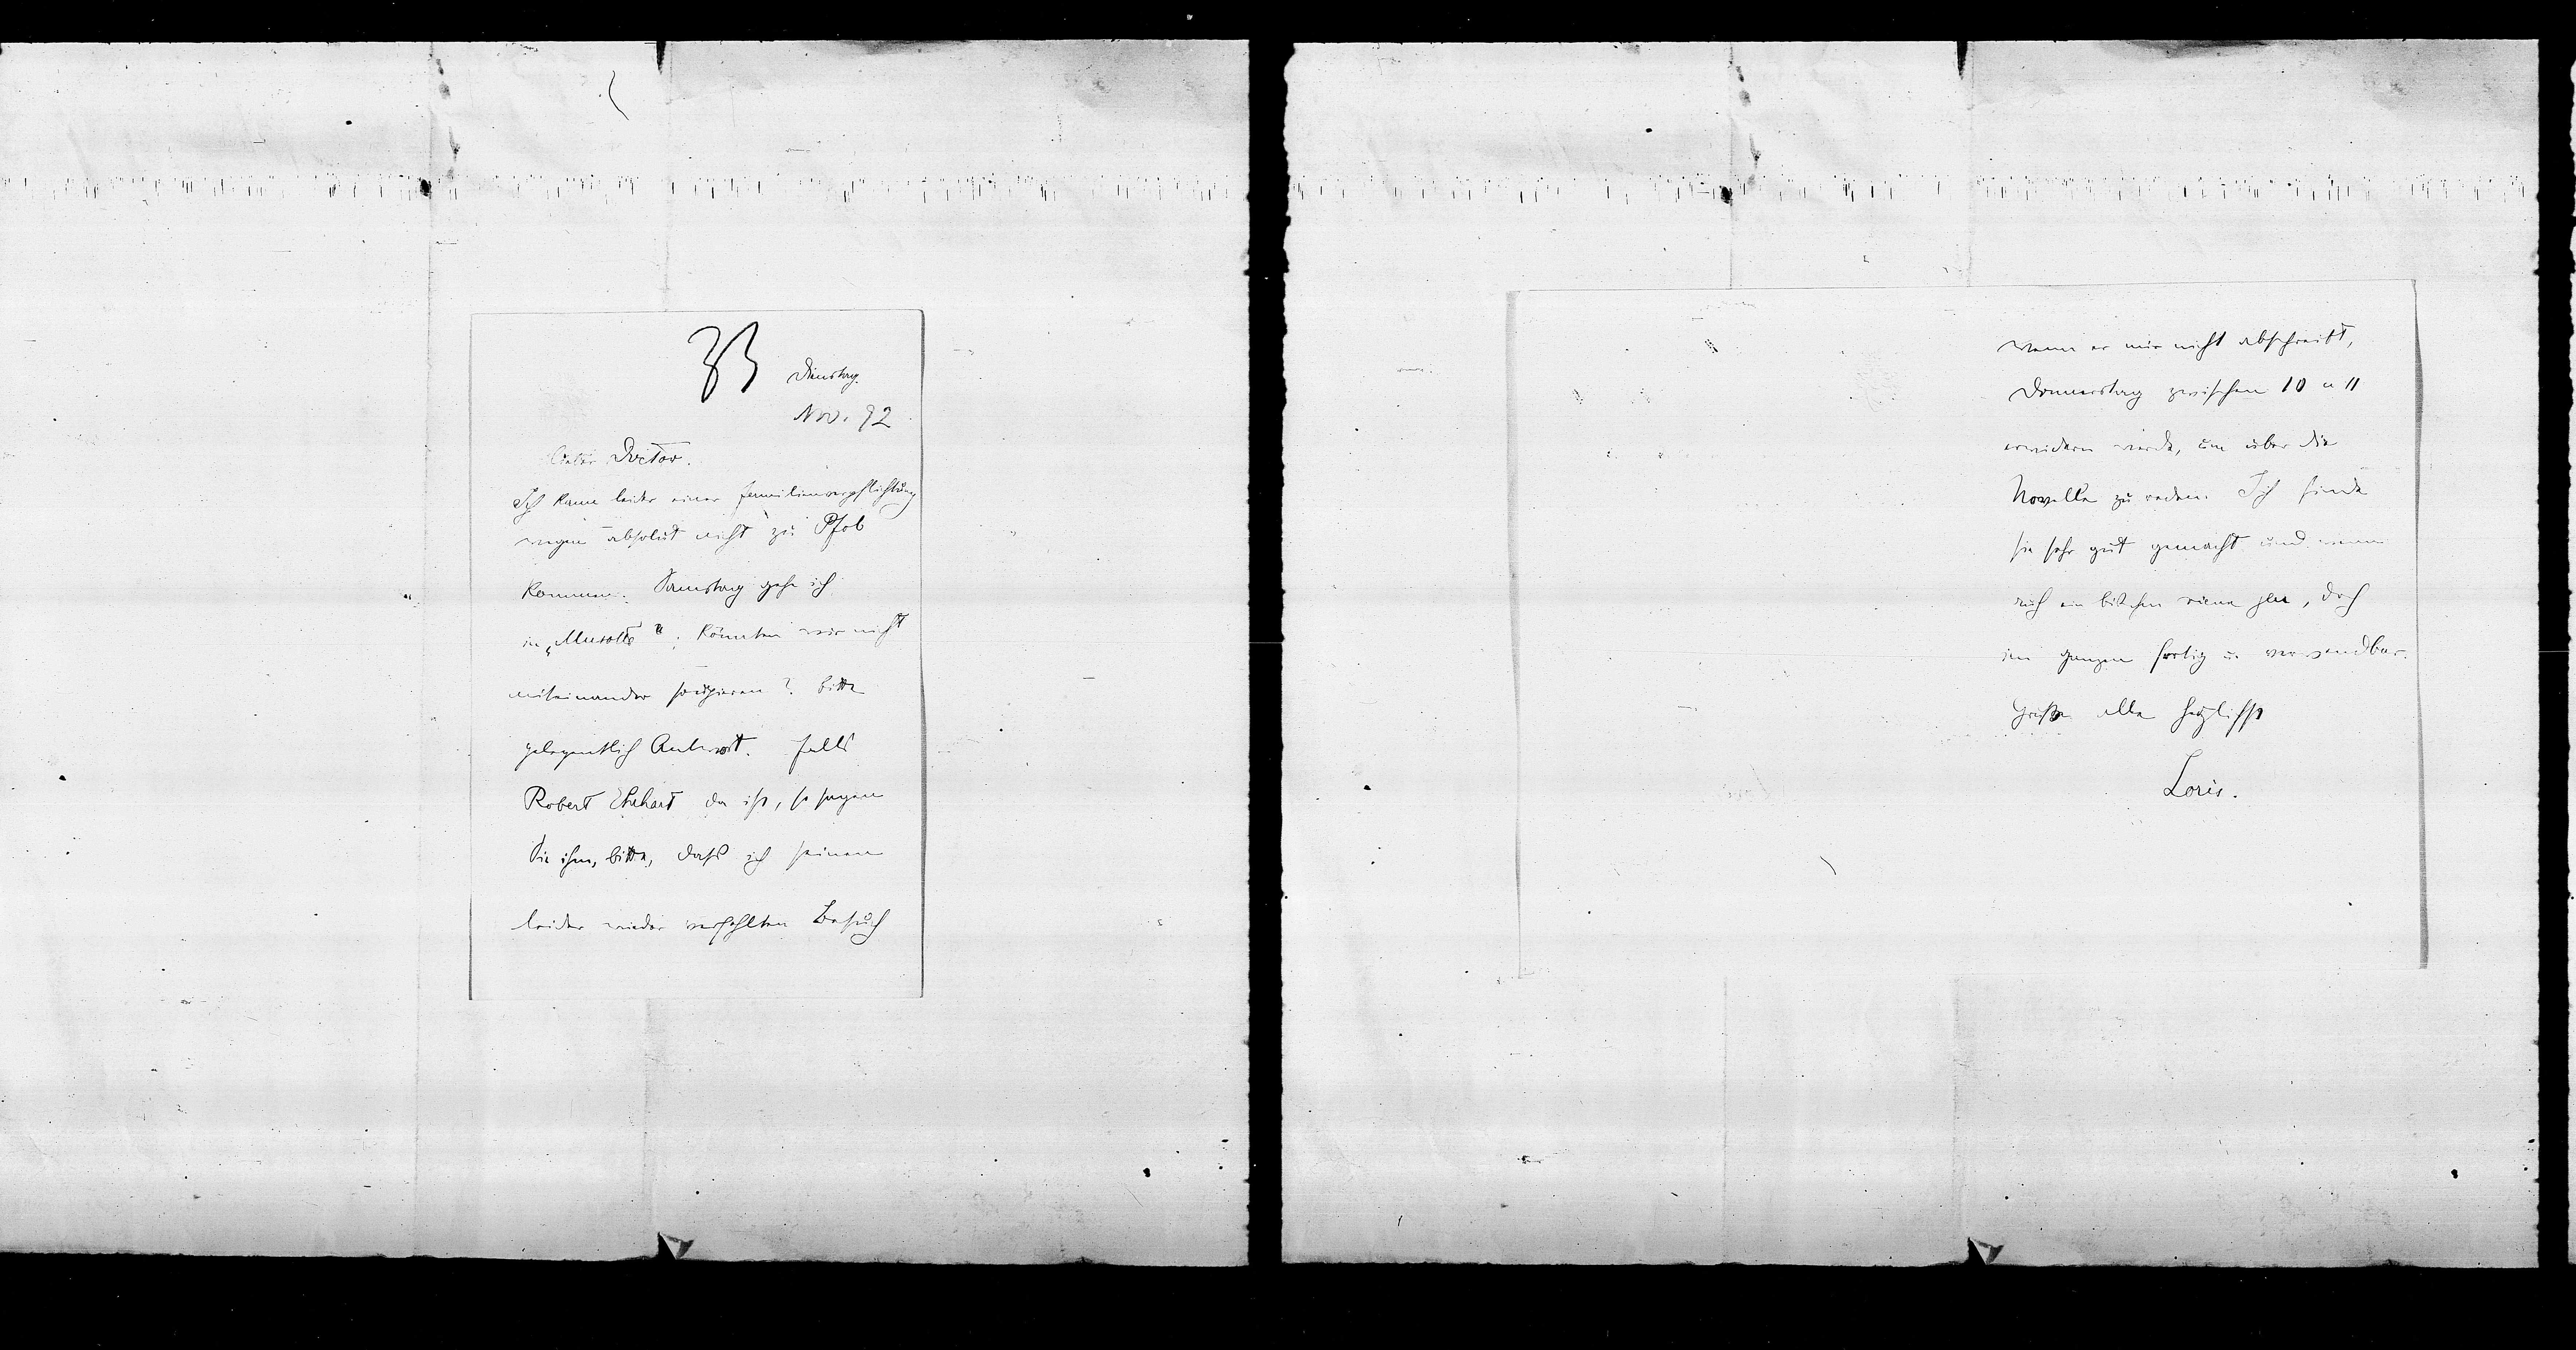 33
Dienstag.
Nov. 92
Lieber Doctor.
Ich kann leider einer Familienverpflichtung
wegen absolut nicht zu Pfob
kommen. Samstag gehe ich
in „Musotte“; könnten wir nicht
miteinander soupieren? bitte
gelegentlich Antwort. Falls
Robert Ehrhart da ist, so sagen
Sie ihm, bitte, dass ich seinen
leider wieder verfehlten Besuch
wenn er mir nicht abschreibt,
Donnerstag zwischen 10 u 11
erwidern werde, um über die
Novelle zu reden. Ich finde
sie sehr gut gemacht und wenn
auch ein bischen, doch
im ganzen fertig u. verwendbar.
Grüße alle herzlichst
Loris.